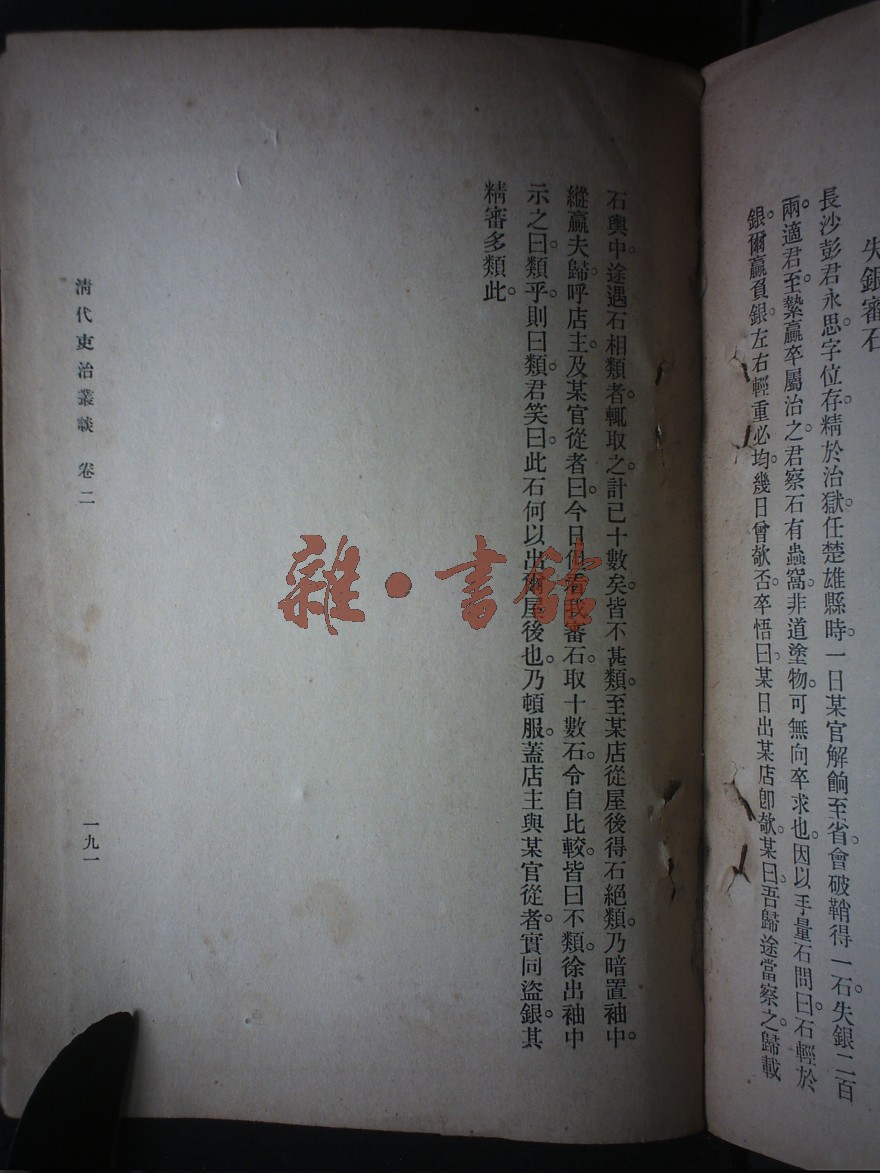 失銀審石
長沙彭君永思。字位存。精於治獄。任楚雄縣時。一日某官解餉至省會。破鞘得一石。失銀二百
兩。適君至。縶羸卒屬治之。君察石有蟲窩。非道塗物。可無向卒求也。因以手量石。問曰。石輕於
銀。爾羸負銀。左右輕重必均。幾日曾欹否。卒悟曰。某日出某店卽欹。某曰。吾歸途當察之。歸載
石輿中。途遇石相類者。輒取之。計已十數矣。皆不甚類。至某店。從屋後得石絕類。乃暗置袖中。
縱羸夫歸。呼店主及某官從者曰。今日但看我審石。取十數石。令自比較。皆曰不類。徐出袖中
示之曰。類乎。則曰類。君笑曰。此石何以出爾屋後也。乃頓服。蓋店主與某官從者。實同盜銀。其
精審多類此。
清代吏治叢談 卷二
一九一
雜·書館